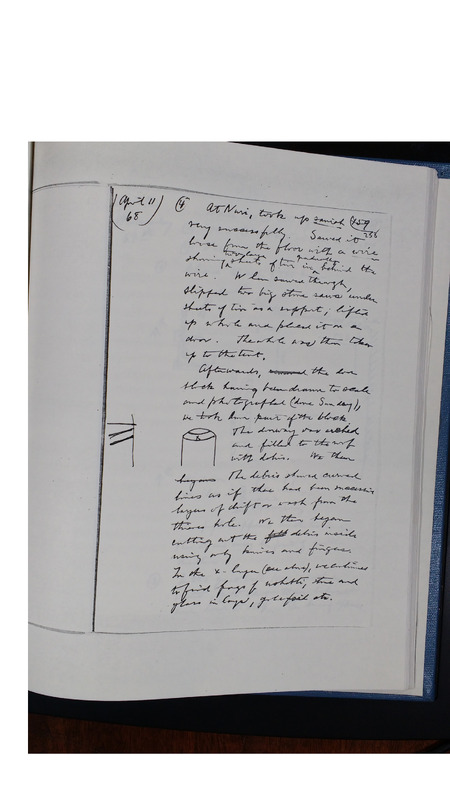 (April 11
68)
④ At Nuri, took up
very successfully. Sawed it
loose from the floor with a wire
two plain
shoving sheets of tin in behind the
wire. When sawed through,
slipped two big stone saws under
sheets of tin as a support, lifted
up whole and placed it on a
door. The whole was then taken
up to the tent.
Afterwards, the door
block having been drawn to scale
and photographed (done Sunday),
we took down part of the block.
The doorway was arched
and filled to the roof
with debris. We then
The debris showed curved
lines as if there had been successive
layers of drift or wash from the
thieves hole. We then began
cutting out the debris inside
using only knives and fingers.
In the x-layer (see above), we continued
to find frags of shawabti, stone and
glass, gold foil etc.